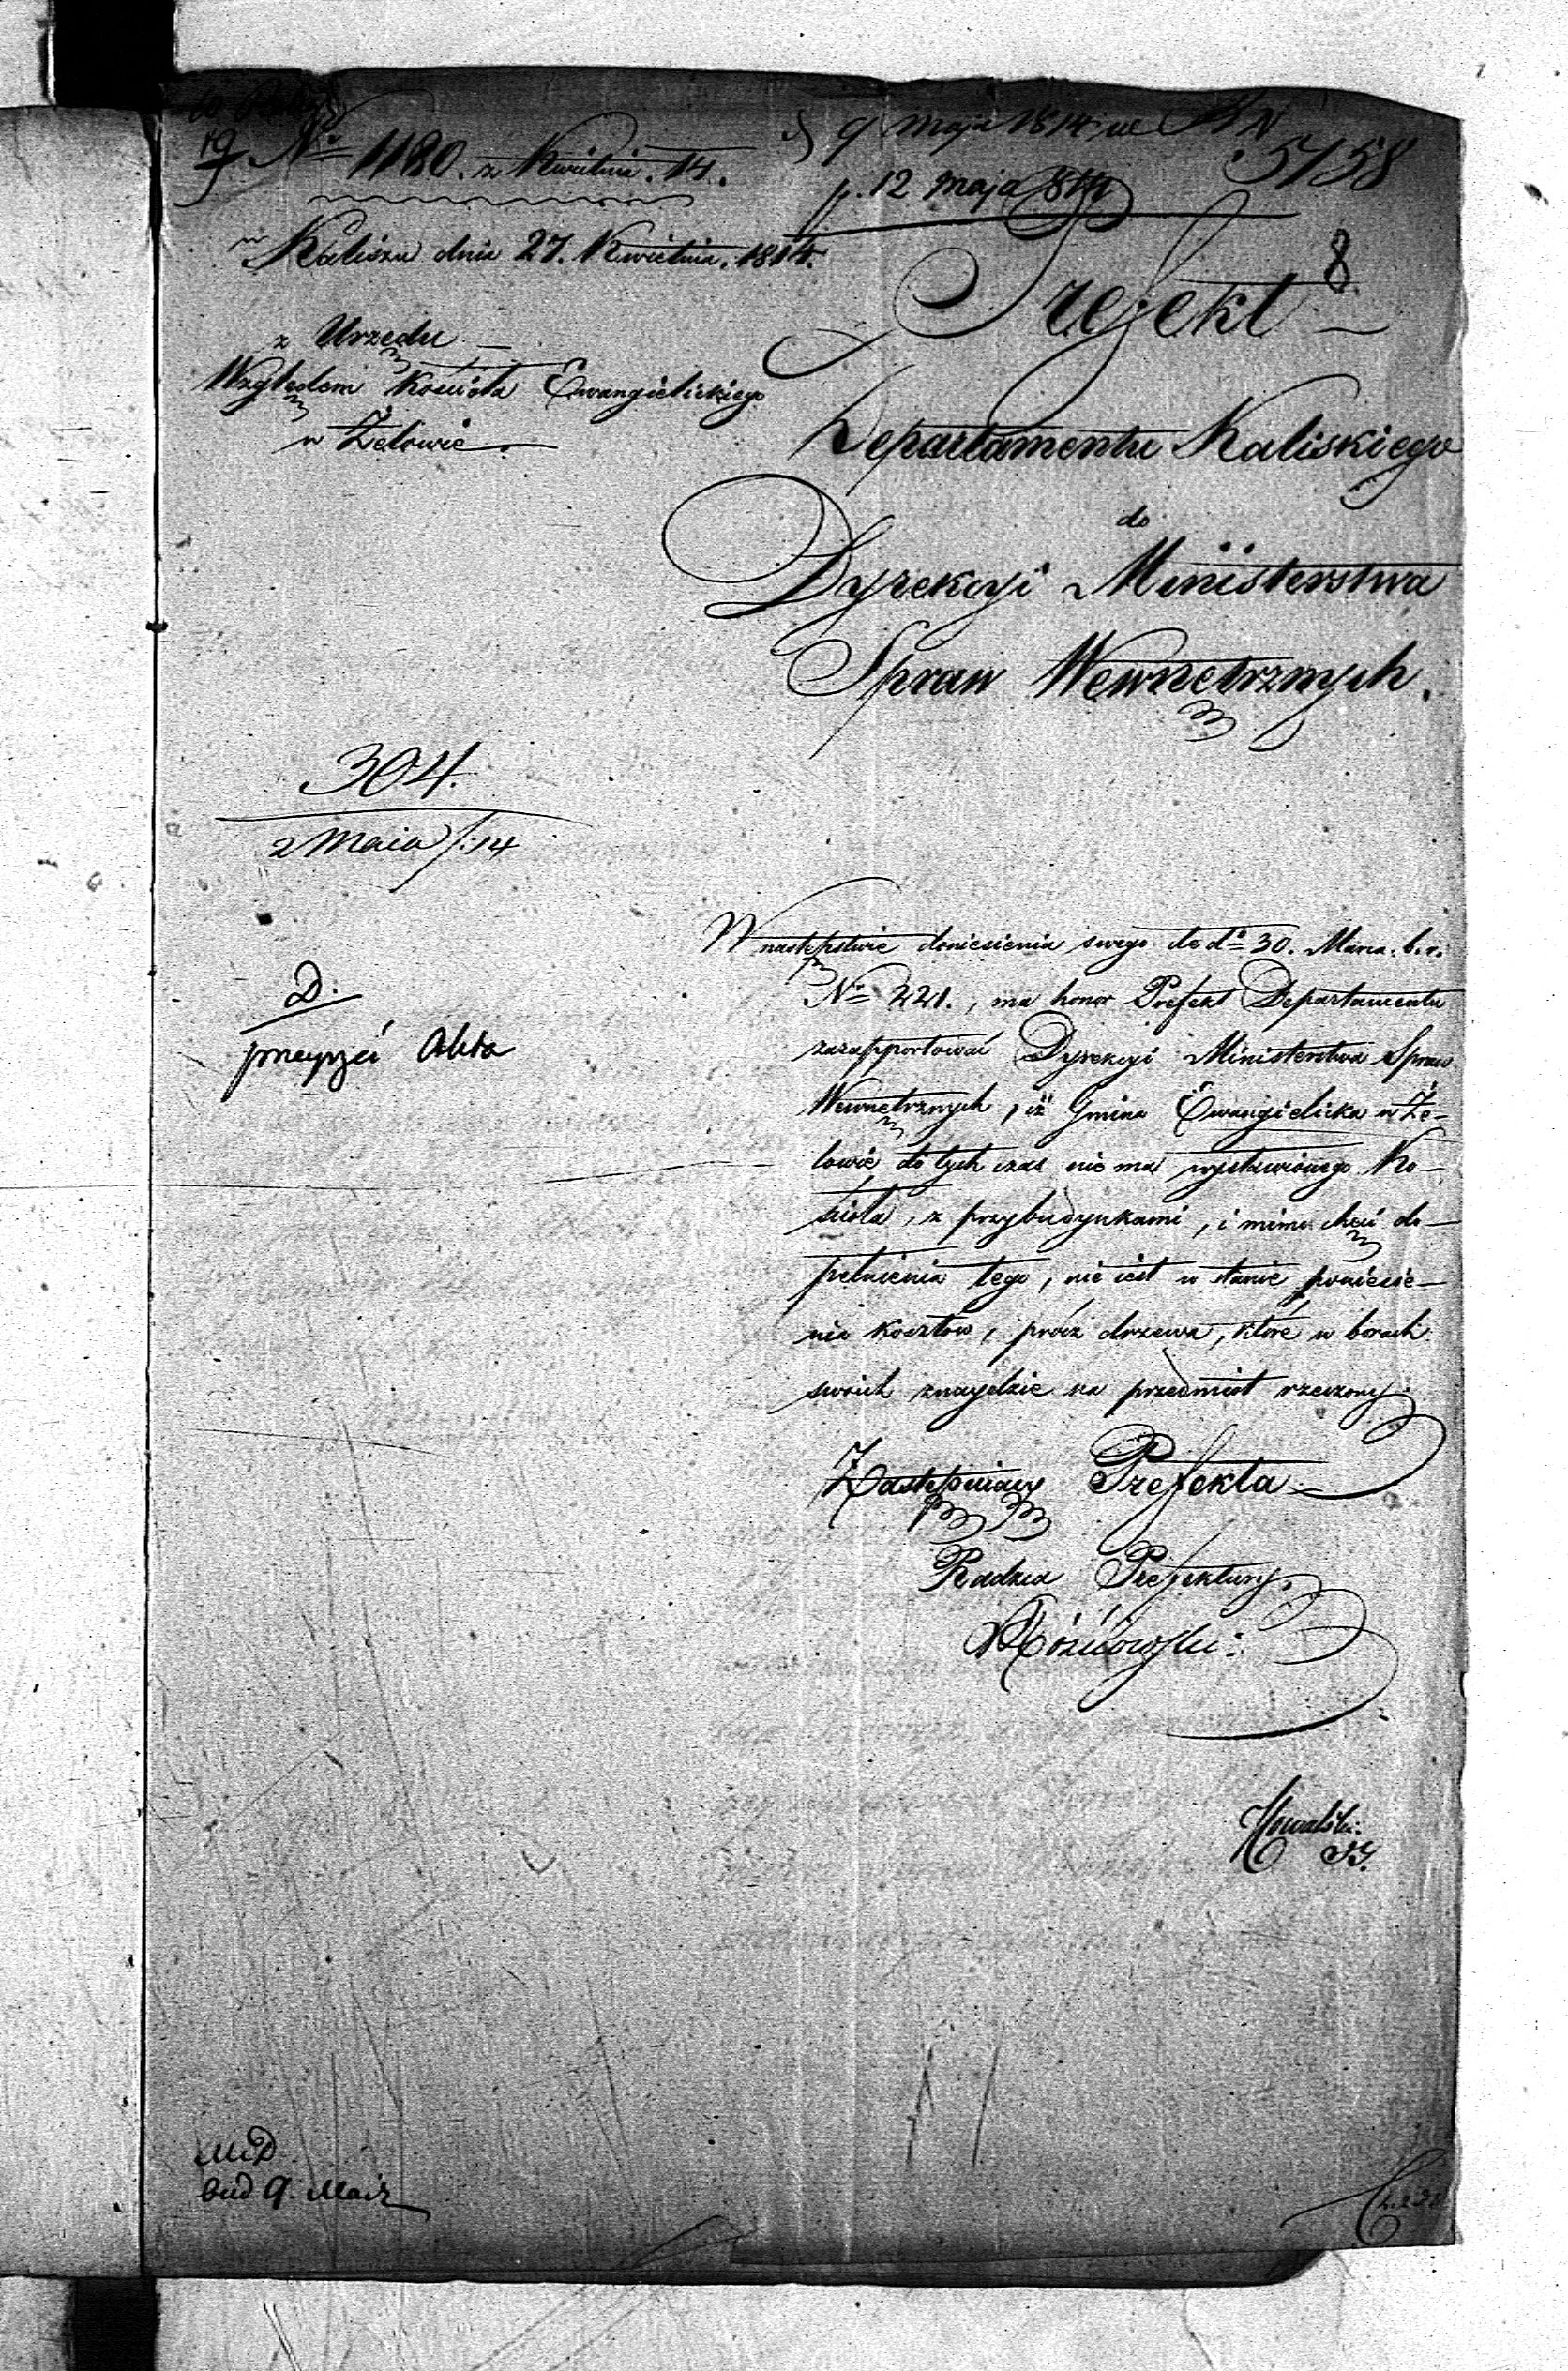 No 1180. z Kwietnia. 14.
9 Maja 1814
5158
p. 12 maja 1814
w Kaliszu dnia 27. Kwietnia. 1814.
8
Prefekt
z Urzędu
Względem Kościoła Ewangielickiego
w Żelowie.
Departamentu Kaliskiego
do
Dyrekcyi Ministerstwa
Spraw Wewnętrznych.
304.
2 Maia /:14
W następstwie doniesienia swego de do 30. Marca. b. r.
No 221., ma honor Prefekt Departamentu
zarapportować Dyrekcyi Ministerstwa Spraw
Wewnętrznych, iż Gmina Ewangielicka w Że-
lowie do tych czas nie ma wystawionego Ko-
ścioła, z przybudynkami, i mimo chęci do-
pełnienia tego, nie iest w stanie poniesie-
nia kosztów, prócz drzewa, które w borach
swoich znaydzie na przedmiot rzeczony.
D.
przyszyć Akta
Zastępuiący Prefekta
Radzca Prefektury.
Kowalski.
SJ.
9. Maia